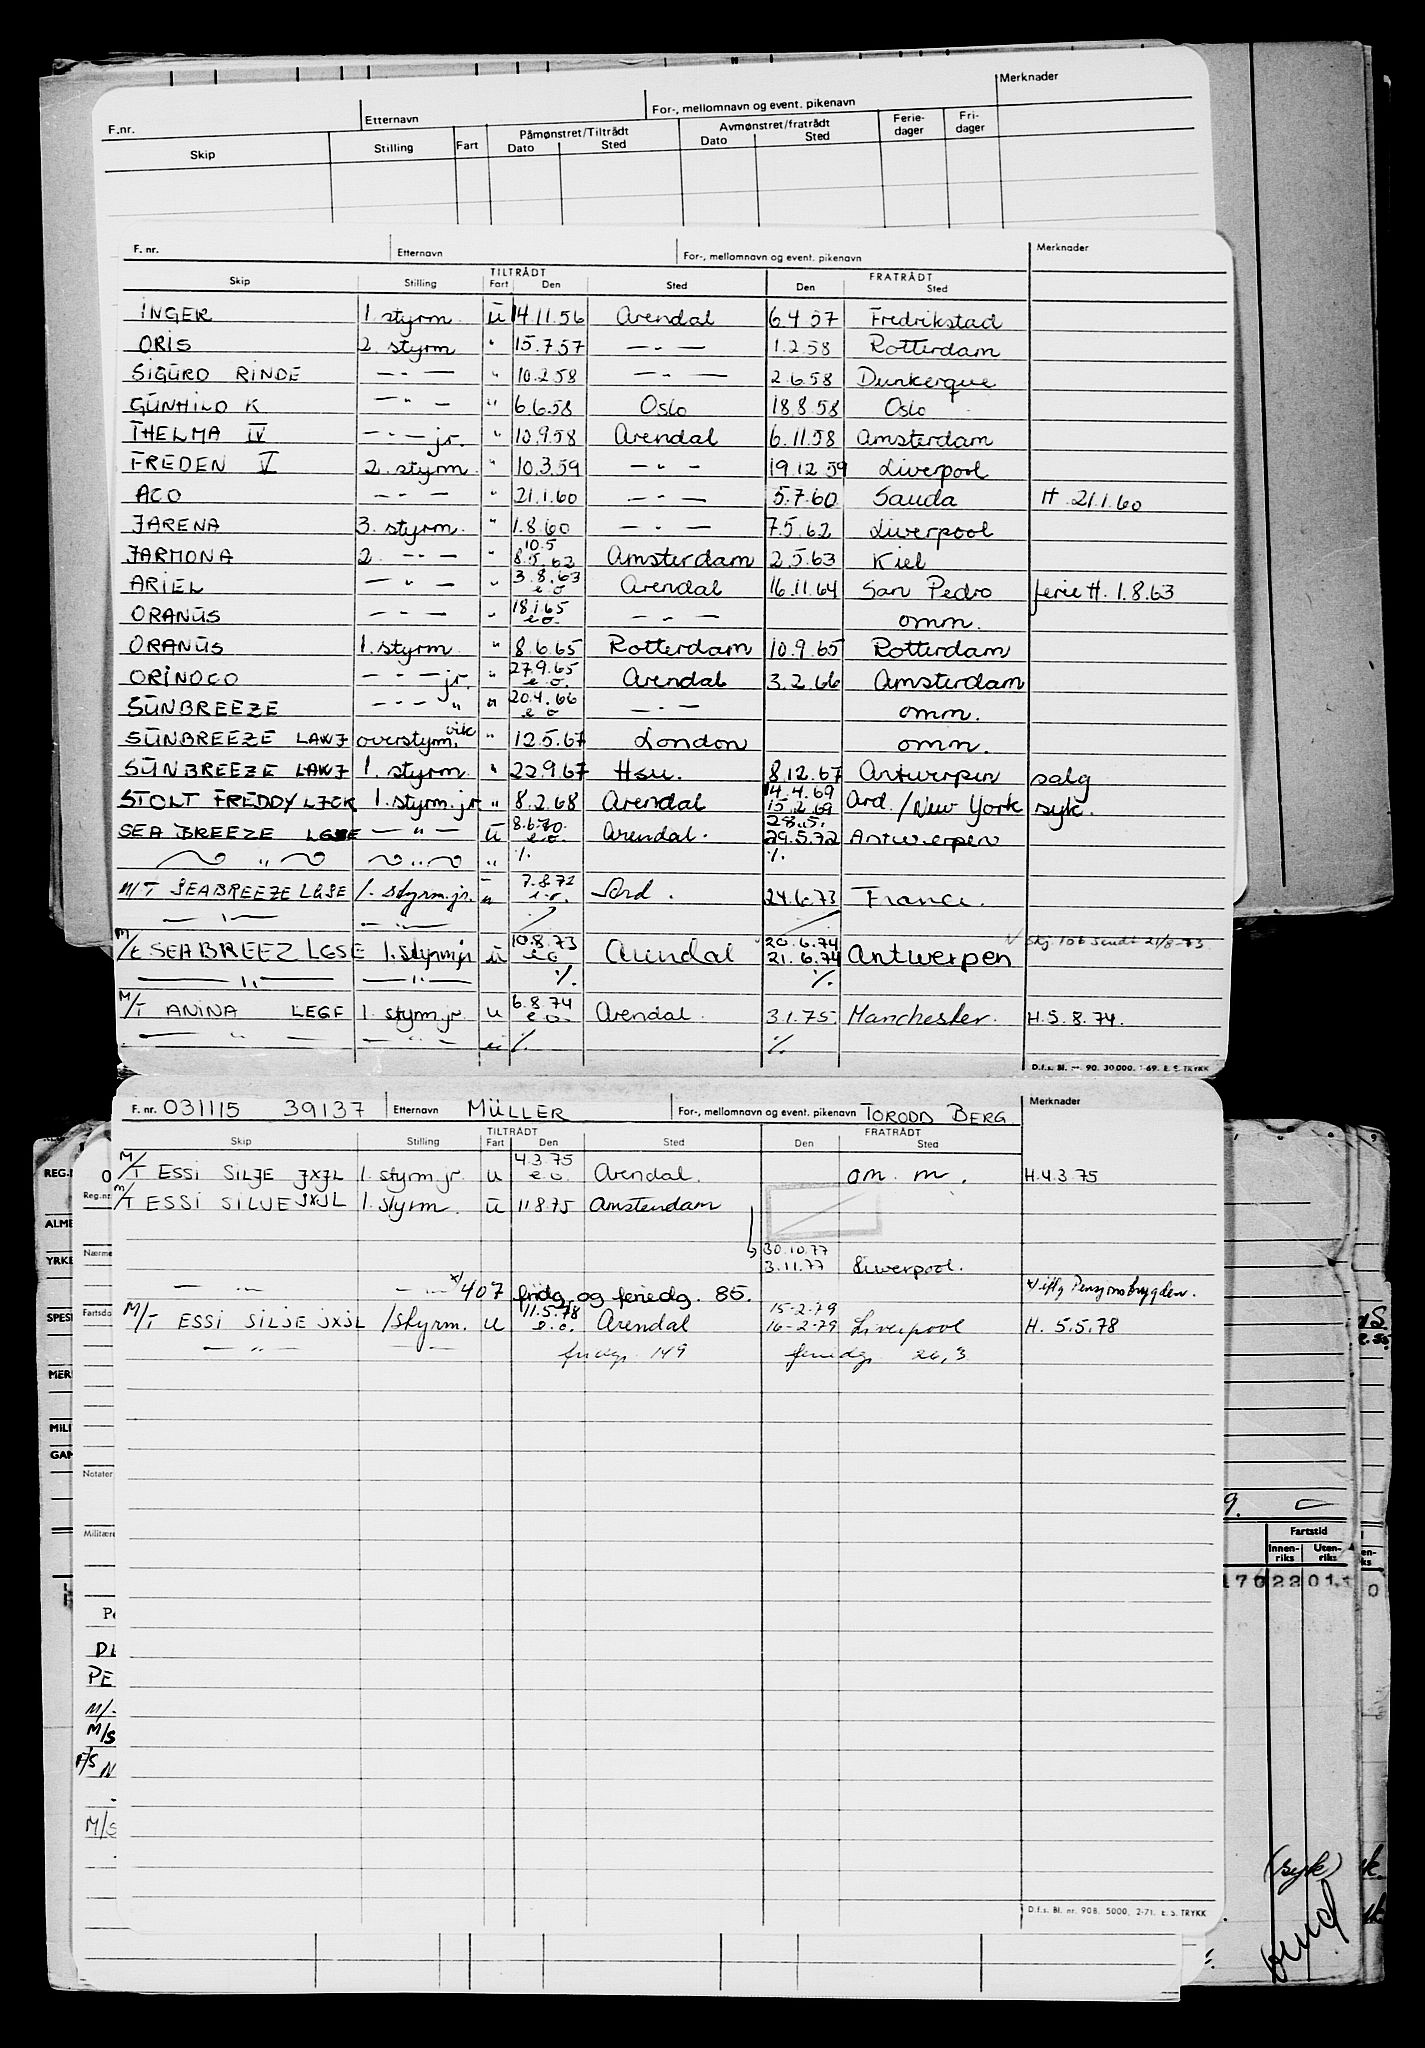 Merknader
F.nr. Etternavn For-, mellomnavn og event. pikenavn
Skip Stilling Fart Påmønstret/Tiltrådt Avmønstret/fratrådt Ferie-dager Fri-dager
Dato Sted Dato Sted
F. nr. Etternavn For-, mellomnavn og event. pikenavn Merknader
TILTRÅDT FRATRÅDT
Skip Stilling Fart Den Sted Den Sted
INGER 1. styrm. u 14.11.56 Arendal 6.4.57 Fredrikstad
ORIS 2. styrm " 15.7.57 — " — 1.2.58 Rotterdam
SIGURD RINDE — " — " 10.2.58 — " — 2.6.58 Dunkerque
GUNHILD K — " — " 6.6.58 Oslo 18.8.58 Oslo
THELMA IV — " — jr. " 10.9.58 Arendal 6.11.58 Amsterdam
FREDEN V 2. styrm. " 10.3.59 — " — 19.12.59 Liverpool
ACO — " — " 21.1.60 — " — 5.7.60 Sauda H. 21.1.60
JARENA 3. styrm. " 1.8.60 — " — 7.5.62 Liverpool
JARMONA 2. — " — " 10.5 8.5.62 Amsterdam 2.5.63 Kiel
ARIEL — " — " 3.8.63 e.o. Arendal 16.11.64 San Pedro ferie H. 1.8.63
ORANUS — " — " 18.1.65 e.o. — " — omm.
ORANUS 1. styrm. " 8.6.65 Rotterdam 10.9.65 Rotterdam
ORINOCO — " — jr. " 27.9.65 e.o. Arendal 3.2.66 Amsterdam
SUNBREEZE — " — " " 20.4.66 e.o. — " — omm.
SUNBREEZE LAWJ overstyrm. vik " 12.5.67 London omm.
SUNBREEZE LAWJ 1. styrm. " 22.9.67 Hsu. 8.12.67 Antwerpen salg
STOLT FREDDY LJCK 1. styrm. jr " 8.2.68 Arendal 14.4.69 15.2.69 Ard. / New York syk.
SEA BREEZE LGSE — " — u 8.6.70 e.o. Arendal. 28.5. 29.5.72 Antwerpen
— " — — " — " %. %.
M/T SEABREEZE LGSE 1. styrm. jr. u 7.8.72 e.o. Ard. 24.6.73 France.
— " — — " —
M/T SEABREEZ LGSE 1. styrm jr u 10.8.73 e.o. Arendal 20.6.74 21.6.74 Antwerpen Skj. 106 sendt 21/8-73
— " — — " — %. %.
M/T ANINA LEGF 1. styrm. jr. u 6.8.74 e.o. Arendal. 3.1.75. Manchester. H.5.8.74.
— " — — " — u %. %.
D.f.s. Bl. nr. 90. 30000. 1-69. E. S. TRYKK
F. nr. 031115 39137 Etternavn MÜLLER For-, mellomnavn og event. pikenavn TORODD BERG. Merknader
TILTRÅDT FRATRÅDT
Skip Stilling Fart Den Sted Den Sted
M/T ESSI SILJE JXJL 1. styrm. jr. u 4.3.75 e.o. Arendal. om. m. H.4.3.75
M/T ESSI SILJE JXJL 1. styrm. u 11.8.75 Amsterdam
30.10.77
3.11.77 Liverpool.
— " — — " — x/ 407 fridg. og feriedg. 85. x/ iflg Pensjonstrygden.
M/T ESSI SILJE JXJL 1 styrm. u 11.5.78 e.o. Arendal 15-2-79 16-2-79 Liverpool H. 5.5.78
— " — — " — fridg. 149 feriedg. 26,3
D.f.s. Bl. nr. 90B. 5000. 2-71. E. S. TRYKK
REG.N
Reg.nr.
ALME
Nærme
YRKE
SPESI
Fartsdo
MERK
MILI
GAM
Notater
Militære
PE
M/S
F/S
M/S
Fartstid
Innen-riks Uten-riks
170 22 01
(syk)